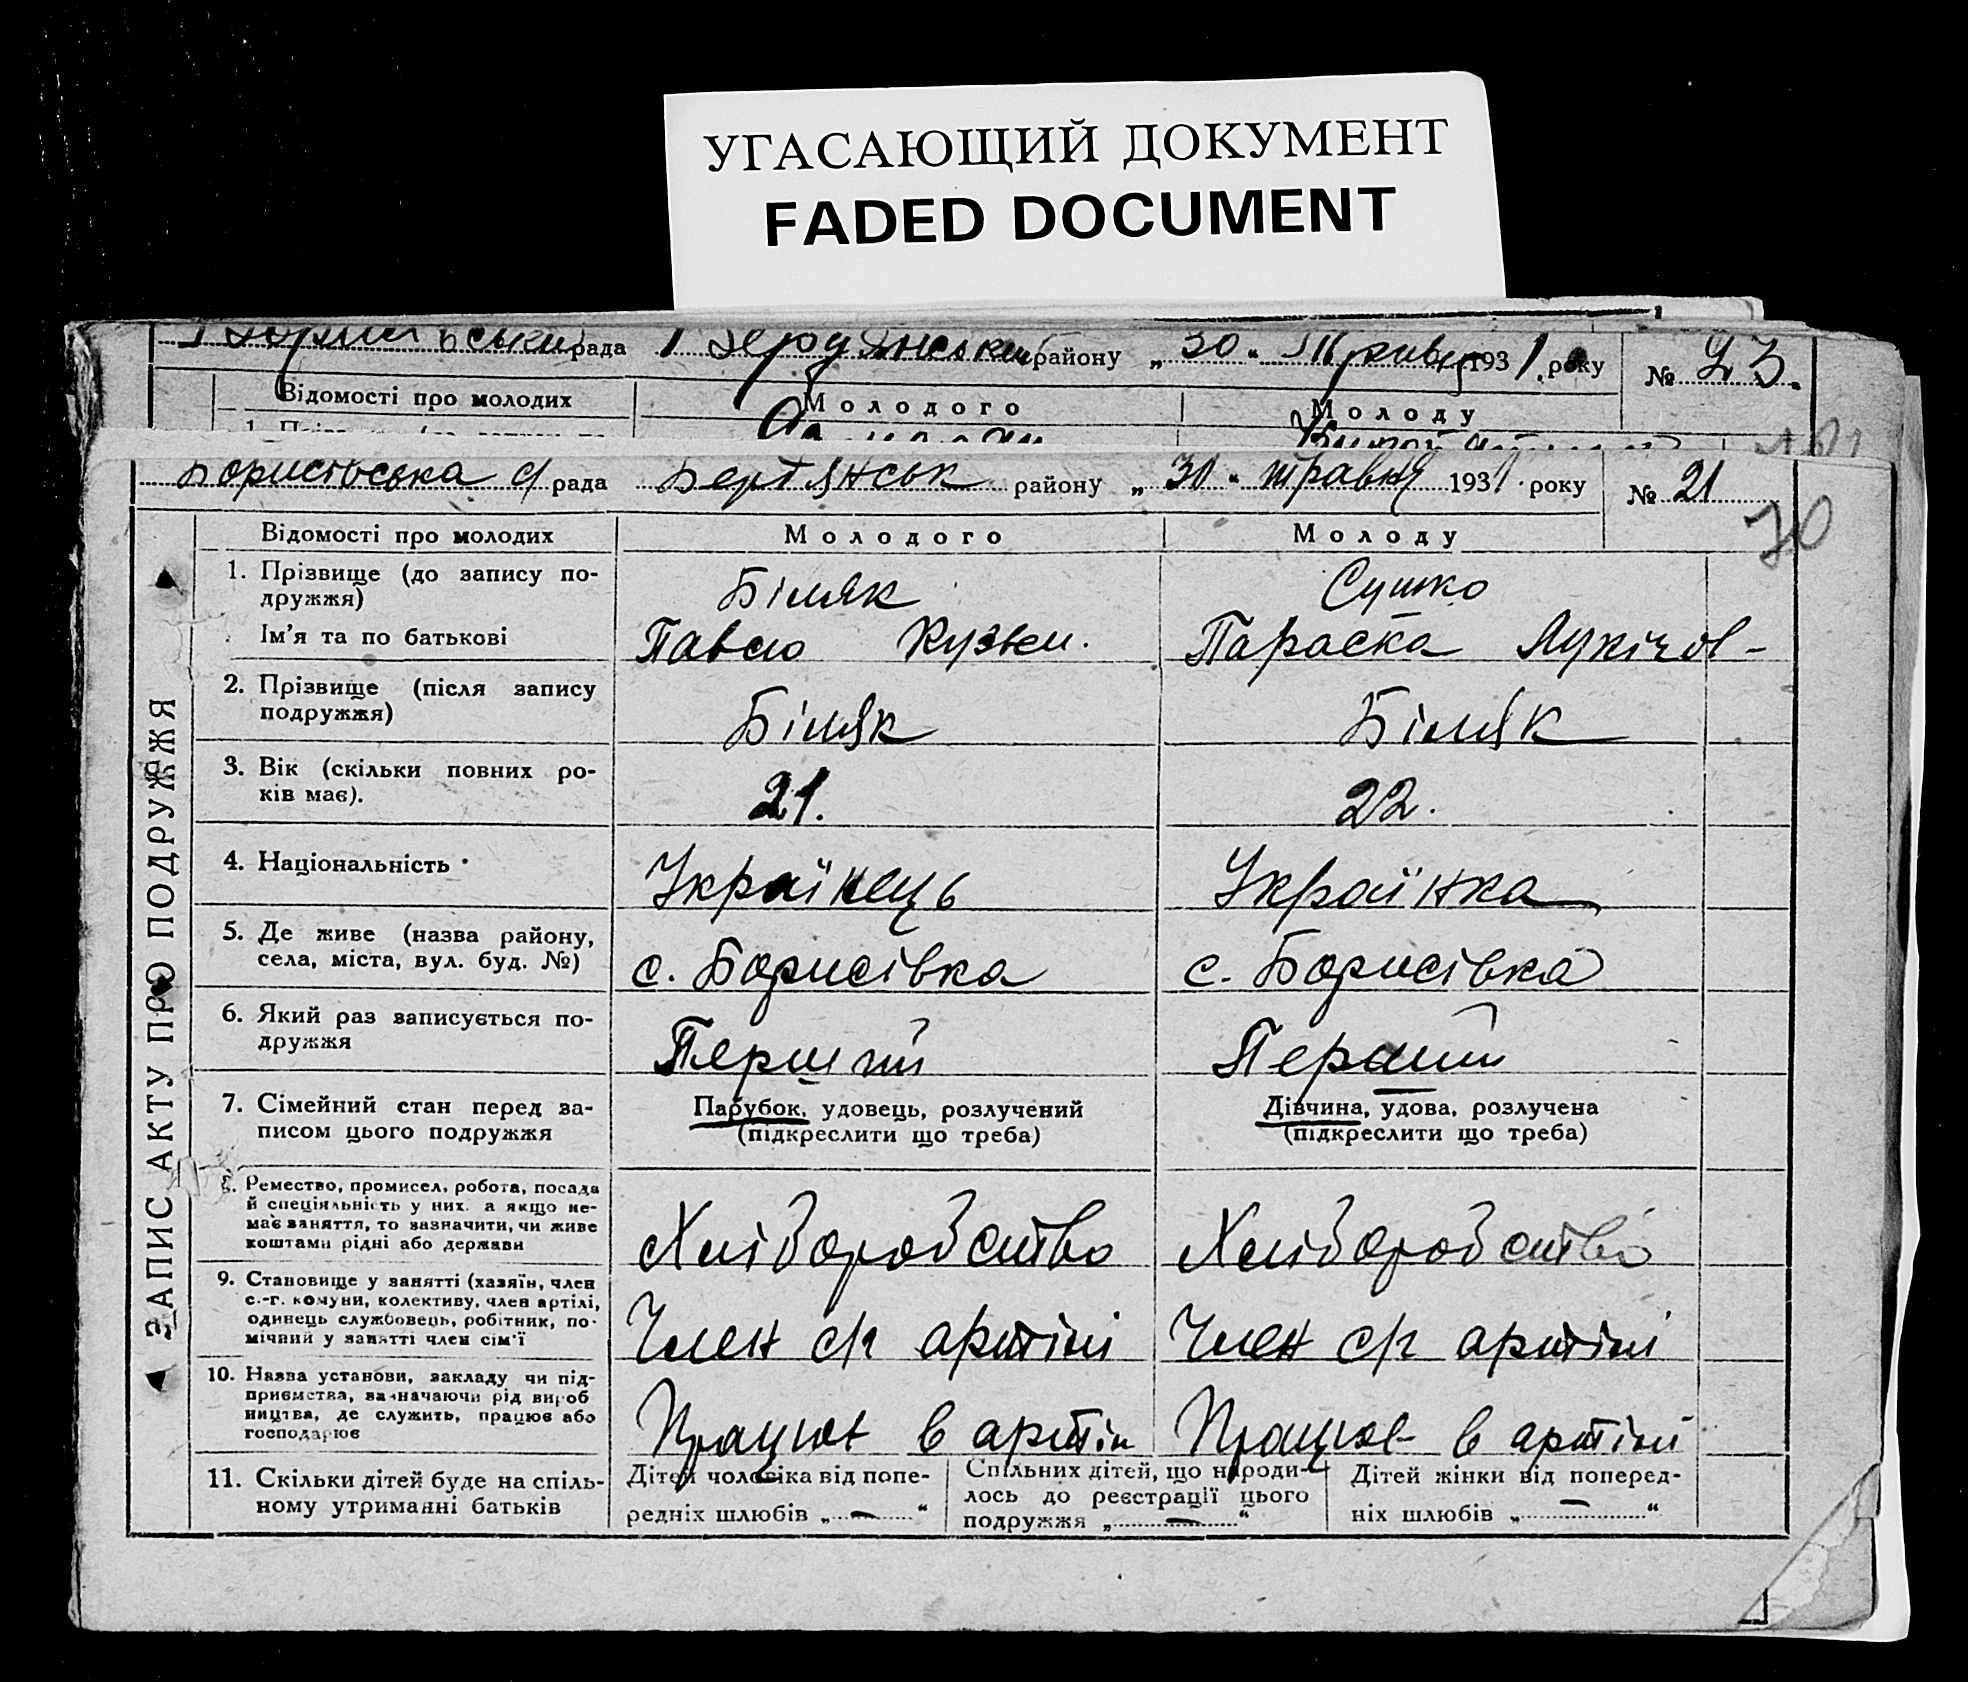 УГАСАЮЩИЙ ДОКУМЕНТ
FADED DOCUMENT
рада району „ 30 “ 1931. року № 23.
Відомості про молодих Молодого Молоду
Борисівська с/рада Бердянськ району „ 30 “ травня 1931. року № 21
70
ЗАПИС АКТУ ПРО ПОДРУЖЖЯ
Відомості про молодих Молодого Молоду
1. Прізвище (до запису по-
дружжя) Біляк Сушко
Ім'я та по батькові Павло Кузьм. Параска Лукічов-
2. Прізвище (після запису
подружжя) Біляк Біляк
3. Вік (скільки повних ро-
ків має). 21. 22.
4. Національність Українець Українка
5. Де живе (назва району,
села, міста, вул. буд. №) с. Борисівка с. Борисівка
6. Який раз записується по-
дружжя Перший Перший
7. Сімейний стан перед за-
писом цього подружжя
Парубок, удовець, розлучений
(підкреслити що треба)
Дівчина, удова, розлучена
(підкреслити що треба)
8. Ремество, промисел, робота, посада
й спеціяльність у них. а якщо не-
має заняття, то зазначити, чи живе
коштами рідні або держави
Хліборобство Хліборобство
9. Становище у занятті (хазяїн, член
с.-г. комуни, колективу, член артілі,
одинець службовець, робітник, по-
мічний у занятті член сім'ї
Член с/г артілі Член с/г артілі
10. Назва установи, закладу чи під-
приємства, зазначаючи рід вироб
ництва, де служить, працює або
господарює
Працює в артілі Працює в артілі
11. Скільки дітей буде на спіль-
ному утриманні батьків
Дітей чоловіка від попе-
редніх шлюбів „ — “
Спільних дітей, що народи-
лось до реєстрації цього
подружжя „ — “
Дітей жінки від поперед-
ніх шлюбів „ — “